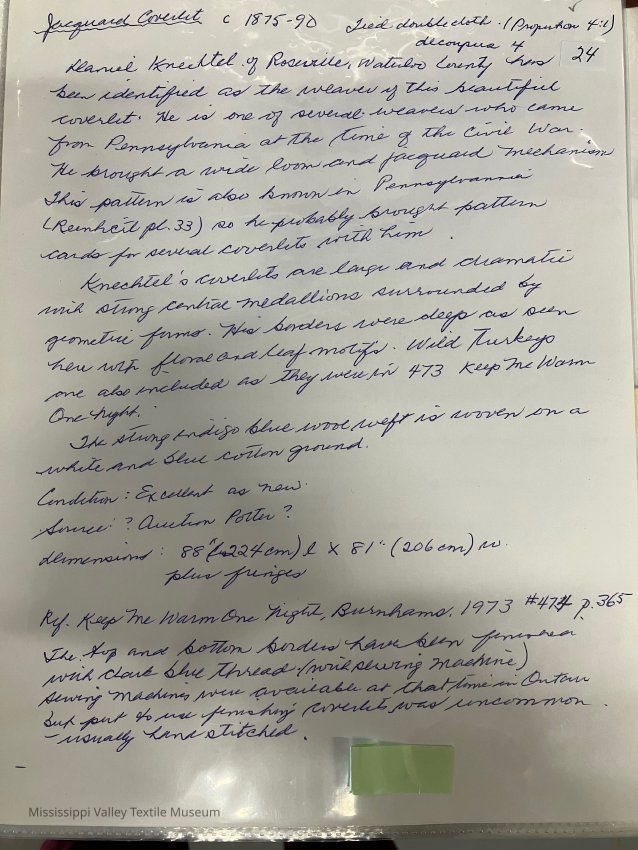 Jacquard Coverlet c 1875-90 Tied doublecloth. (Proportion 4:1)
decoupure 4
24
Daniel Knechtel of Roseville, Waterloo County has
been identified as the weaver of this beautiful
coverlet. He is one of several weavers who came
from Pennsylvania at the time of the Civil War.
He brought a wide loom and jacquard mechanism
This pattern is also known in Pennsylvania
(Reinheit pl. 33) so he probably brought pattern
cards for several coverlets with him.
Knechtel's coverlets are large and dramatic
with strong central medallions surrounded by
geometric forms. His borders were deep as seen
here with floral and leaf motifs. Wild Turkeys
are also included as they were in 473 Keep Me Warm
One Night.
The strong indigo blue wool weft is woven on a
white and blue cotton ground.
Condition: Excellent as new.
Source: ? Auction Potter?
dimensions: 88" (224cm) l x 81" (206cm) w.
plus fringes
Ref. Keep Me Warm One Night, Burnhams, 1973 #474 p. 365
The top and bottom borders have been finished
with dark blue thread. (with sewing machine)
Sewing machines were available at that time in Ontario
but put to use finishing coverlets was uncommon.
- usually hand stitched.
Mississippi Valley Textile Museum